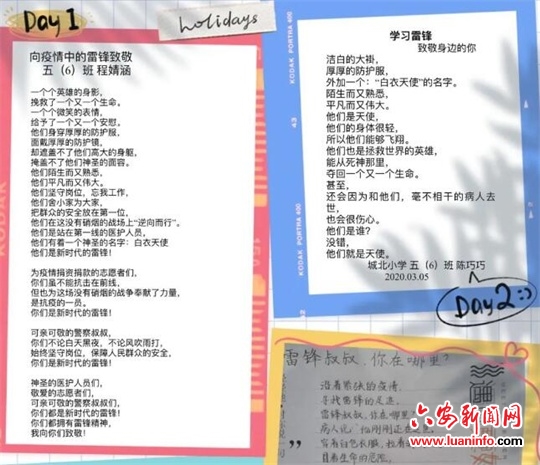 Day 1
holidays
向疫情中的雷锋致敬
五（6）班 程婧涵
一个个英雄的身影，
挽救了一个又一个生命。
一个个微笑的表情，
给予了一个又一个安慰。
他们身穿厚厚的防护服，
面戴厚厚的防护镜，
却遮盖不了他们高大的身躯，
掩盖不了他们神圣的面容。
他们陌生而又熟悉，
他们平凡而又伟大。
他们坚守岗位，忘我工作，
他们舍小家为大家，
把群众的安全放在第一位，
他们在这没有硝烟的战场上“逆向而行”。
他们是站在第一线的医护人员，
他们有着一个神圣的名字：白衣天使
他们是新时代的雷锋！
为疫情捐资捐款的志愿者们，
你们虽不能抗击在前线，
但也为这场没有硝烟的战争奉献了力量，
是抗疫的一员。
你们是新时代的雷锋！
可亲可敬的警察叔叔，
你们不论白天黑夜，不论风吹雨打，
始终坚守岗位，保障人民群众的安全，
你们是新时代的雷锋！
神圣的医护人员们，
敬爱的志愿者们，
可亲可敬的警察叔叔们，
你们都是新时代的雷锋！
你们都拥有雷锋精神，
我向你们致敬！
KODAK PORTRA 400
学习雷锋
致敬身边的你
洁白的大褂，
厚厚的防护服，
外加一个：“白衣天使”的名字。
陌生而又熟悉，
平凡而又伟大。
他们是天使，
他们的身体很轻，
所以他们能够飞翔。
他们也是拯救世界的英雄，
能从死神那里，
夺回一个又一个生命。
甚至，
还会因为和他们，毫不相干的病人去
世，
也会很伤心。
他们是谁？
没错，
他们就是天使。
城北小学 五（6）班 陈巧巧
2020.03.05
Day 2
雷锋叔叔，你在哪里？
沿着
寻找雷锋的足迹，
雷锋叔叔，你在哪里
病人说
穿着白色长服，
冒着生命的危险，
六安新闻网
www.luaninfo.com